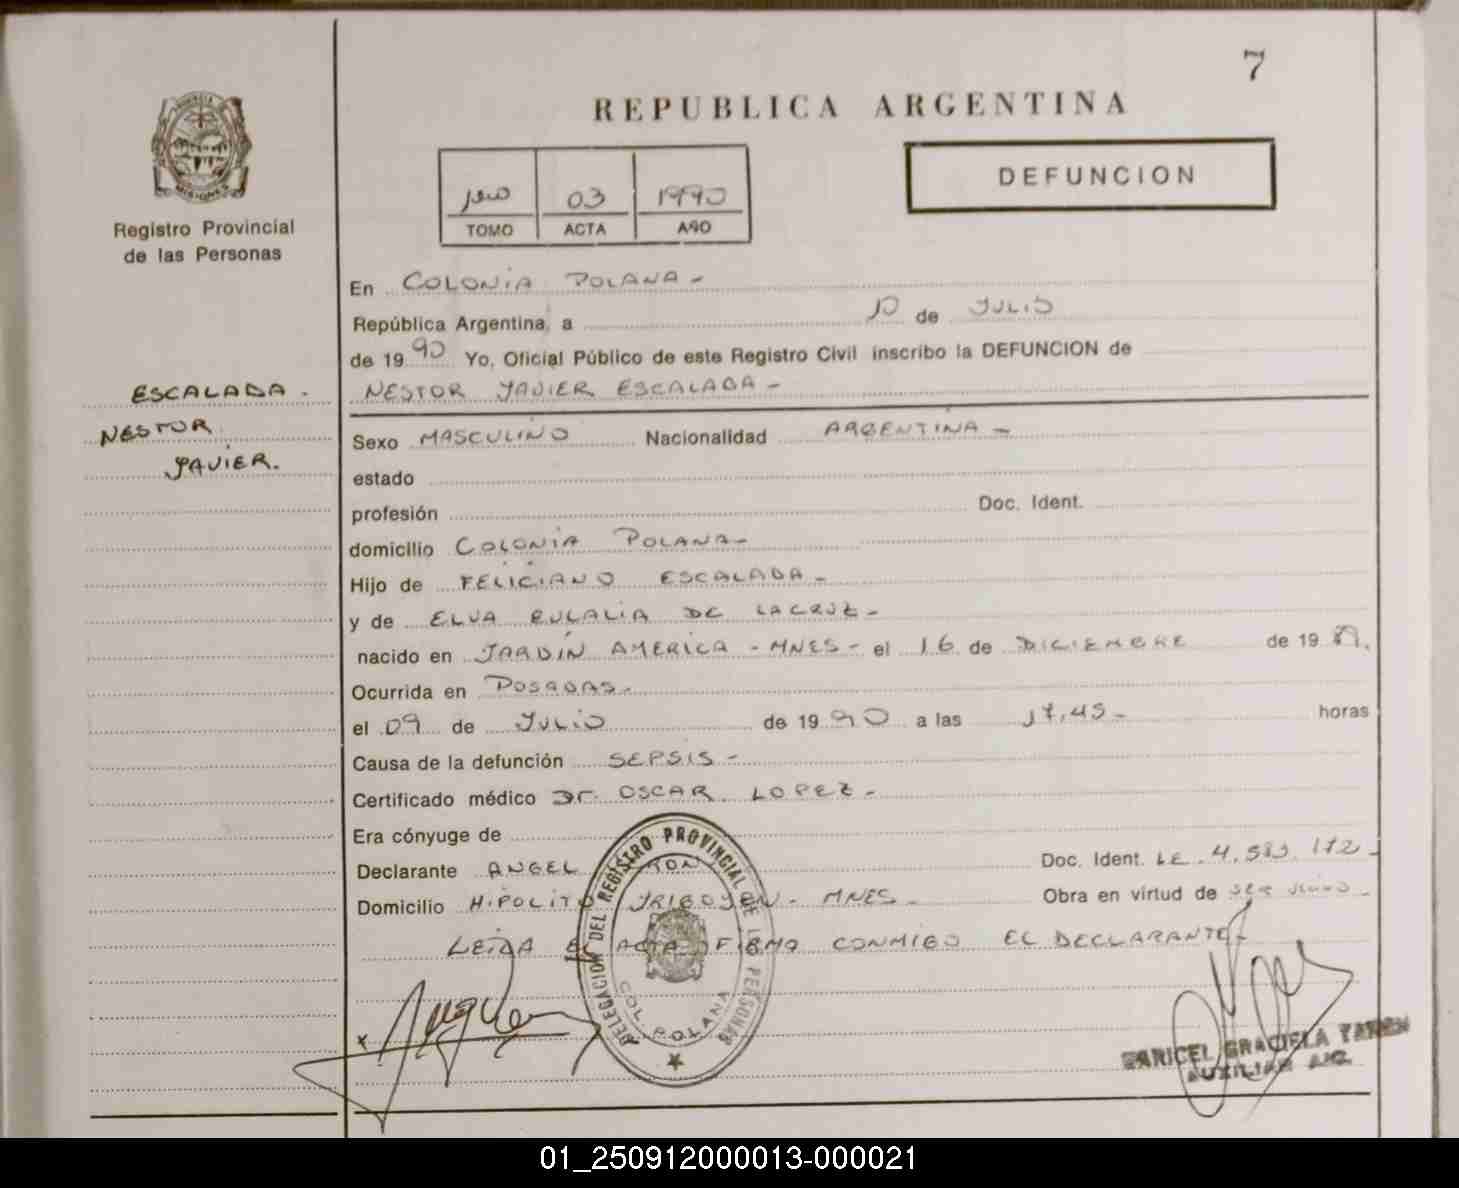 7
REPUBLICA ARGENTINA
DEFUNCION
03 1990
TOMO ACTA AÑO
Registro Provincial
de las Personas
En COLONIA POLANA -
República Argentina, a 10 de JULIO
de 1990 Yo, Oficial Público de este Registro Civil inscribo la DEFUNCION de
NESTOR JAVIER ESCALADA -
ESCALADA -
NESTOR
JAVIER.
Sexo MASCULINO Nacionalidad ARGENTINA -
estado
profesión Doc. Ident.
domicilio COLONIA POLANA -
Hijo de FELICIANO ESCALADA -
y de ELVA EULALIA DE LACRUZ -
nacido en JARDÍN AMERICA - MNES - el 16 de DICIEMBRE de 1989.
Ocurrida en POSADAS -
el 09 de JULIO de 1990 a las 17,45 - horas
Causa de la defunción SEPSIS -
Certificado médico Dr. OSCAR LOPEZ -
Era cónyuge de
Declarante ANGEL Doc. Ident. LE. 4.583.172 -
Domicilio HIPOLITO YRIGOYEN - MNES - Obra en virtud de
LEIDA EL ACTA FIRMA CONMIGO EL DECLARANTE -
DELEGACION DEL REGISTRO PROVINCIAL DE LAS PERSONAS
COL. POLANA
MARICEL GRACIELA
AUXILIAR
01_250912000013-000021